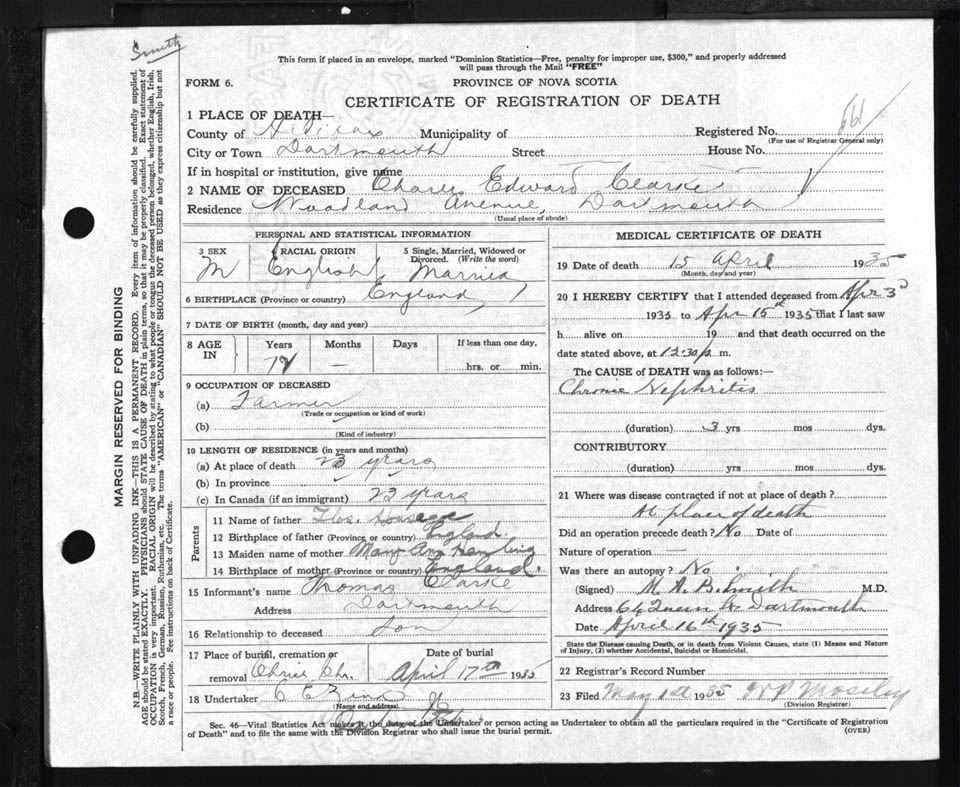 Smith
This form if placed in an envelope, marked "Dominion Statistics—Free, penalty for improper use, $300," and properly addressed
will pass through the Mail "FREE"
FORM 6.
PROVINCE OF NOVA SCOTIA
CERTIFICATE OF REGISTRATION OF DEATH
1 PLACE OF DEATH—
County of Halifax Municipality of
Registered No.
(For use of Registrar General only)
City or Town Dartmouth Street House No.
If in hospital or institution, give name
2 NAME OF DECEASED Charles Edward Clarke
Residence Woodland Avenue, Dartmouth
(Usual place of abode)
PERSONAL AND STATISTICAL INFORMATION
3 SEX M
4 RACIAL ORIGIN English
5 Single, Married, Widowed or
Divorced. (Write the word)
Married
6 BIRTHPLACE (Province or country) England
7 DATE OF BIRTH (month, day and year)
8 AGE IN
Years Months Days If less than one day,
72 — hrs. or min.
9 OCCUPATION OF DECEASED
(a) Farmer
(Trade or occupation or kind of work)
(b)
(Kind of industry)
10 LENGTH OF RESIDENCE (in years and months)
(a) At place of death 23 years
(b) In province
(c) In Canada (if an immigrant) 23 years
Parents
11 Name of father Thos.
12 Birthplace of father (Province or country) England
13 Maiden name of mother Mary Ann
14 Birthplace of mother (Province or country) England.
15 Informant's name Thomas Clarke
Address Dartmouth
16 Relationship to deceased Son
17 Place of burial, cremation or
removal Christ Ch.
Date of burial
April 17th 1935
18 Undertaker
(Name and address)
MEDICAL CERTIFICATE OF DEATH
19 Date of death 15 April 1935
(Month, day and year)
20 I HEREBY CERTIFY that I attended deceased from Apr 3d
1935 to Apr 15th 1935 that I last saw
h alive on 19 and that death occurred on the
date stated above, at 12.30 p m.
The CAUSE of DEATH was as follows:—
Chronic Nephritis
(duration) 3 yrs mos dys.
CONTRIBUTORY
(duration) yrs mos dys.
21 Where was disease contracted if not at place of death?
At place of death
Did an operation precede death? No Date of
Nature of operation —
Was there an autopsy? No
(Signed) M. A. B. Smith M.D.
Address 64 Queen St Dartmouth
Date April 16th 1935
State the Disease causing Death, or in death from Violent Causes, state (1) Means and Nature
of Injury, (2) whether Accidental, Suicidal or Homicidal.
22 Registrar's Record Number
23 Filed May 1st 1935
(Division Registrar)
Sec. 46—Vital Statistics Act makes it the duty of the Undertaker or person acting as Undertaker to obtain all the particulars required in the "Certificate of Registration
of Death" and to file the same with the Division Registrar who shall issue the burial permit.
(OVER)
MARGIN RESERVED FOR BINDING
N.B.—WRITE PLAINLY WITH UNFADING INK—THIS IS A PERMANENT RECORD. Every item of information should be carefully supplied.
AGE should be stated EXACTLY. PHYSICIANS should STATE CAUSE OF DEATH in plain terms, so that it may be properly classified. Exact statement of
OCCUPATION is very important. RACIAL ORIGIN will be described by stating to what people or tongue the deceased person belonged, whether English, Irish,
Scotch, French, German, Russian, Ruthenian, etc. The terms "AMERICAN" or "CANADIAN" SHOULD NOT BE USED as they express citizenship but not
a race or people. See instructions on back of Certificate.